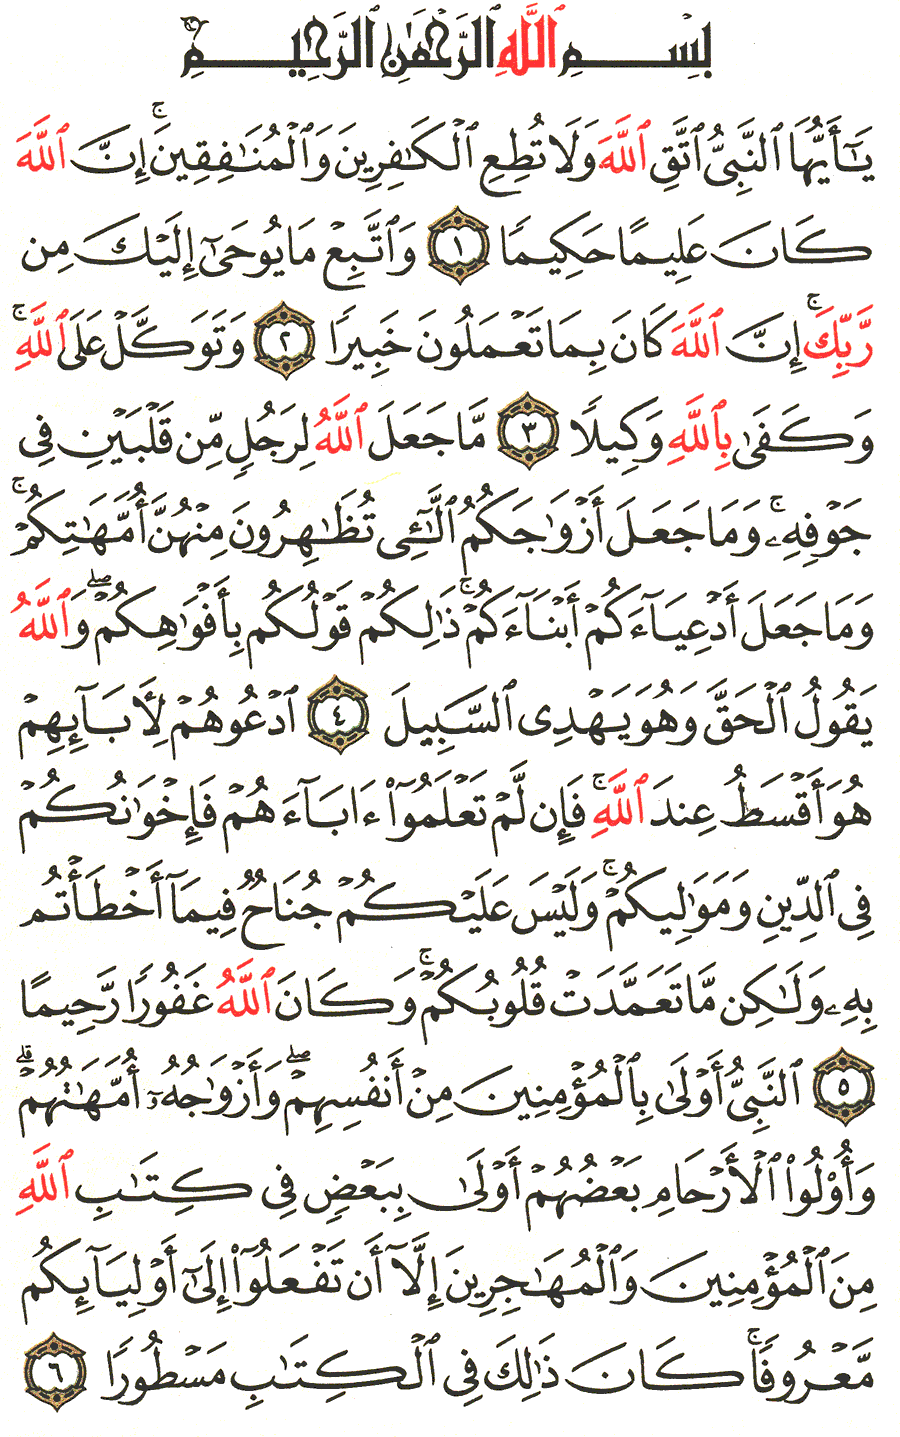 بِسْمِ ٱللَّهِ ٱلرَّحْمَٰنِ ٱلرَّحِيمِ
يَٰٓأَيُّهَا ٱلنَّبِىُّ ٱتَّقِ ٱللَّهَ وَلَا تُطِعِ ٱلْكَٰفِرِينَ وَٱلْمُنَٰفِقِينَ ۚ إِنَّ ٱللَّهَ
كَانَ عَلِيمًا حَكِيمًا ١ وَٱتَّبِعْ مَا يُوحَىٰٓ إِلَيْكَ مِن
رَّبِّكَ ۚ إِنَّ ٱللَّهَ كَانَ بِمَا تَعْمَلُونَ خَبِيرًا ٢ وَتَوَكَّلْ عَلَى ٱللَّهِ ۚ
وَكَفَىٰ بِٱللَّهِ وَكِيلًا ٣ مَّا جَعَلَ ٱللَّهُ لِرَجُلٍ مِّن قَلْبَيْنِ فِى
جَوْفِهِۦ ۚ وَمَا جَعَلَ أَزْوَٰجَكُمُ ٱلَّٰٓـِٔى تُظَٰهِرُونَ مِنْهُنَّ أُمَّهَٰتِكُمْ ۚ
وَمَا جَعَلَ أَدْعِيَآءَكُمْ أَبْنَآءَكُمْ ۚ ذَٰلِكُمْ قَوْلُكُم بِأَفْوَٰهِكُمْ ۖ وَٱللَّهُ
يَقُولُ ٱلْحَقَّ وَهُوَ يَهْدِى ٱلسَّبِيلَ ٤ ٱدْعُوهُمْ لِءَابَآئِهِمْ
هُوَ أَقْسَطُ عِندَ ٱللَّهِ ۚ فَإِن لَّمْ تَعْلَمُوٓا۟ ءَابَآءَهُمْ فَإِخْوَٰنُكُمْ
فِى ٱلدِّينِ وَمَوَٰلِيكُمْ ۚ وَلَيْسَ عَلَيْكُمْ جُنَاحٌ فِيمَآ أَخْطَأْتُم
بِهِۦ وَلَٰكِن مَّا تَعَمَّدَتْ قُلُوبُكُمْ ۚ وَكَانَ ٱللَّهُ غَفُورًا رَّحِيمًا
٥ ٱلنَّبِىُّ أَوْلَىٰ بِٱلْمُؤْمِنِينَ مِنْ أَنفُسِهِمْ ۖ وَأَزْوَٰجُهُۥٓ أُمَّهَٰتُهُمْ ۗ
وَأُو۟لُوا۟ ٱلْأَرْحَامِ بَعْضُهُمْ أَوْلَىٰ بِبَعْضٍ فِى كِتَٰبِ ٱللَّهِ
مِنَ ٱلْمُؤْمِنِينَ وَٱلْمُهَٰجِرِينَ إِلَّآ أَن تَفْعَلُوٓا۟ إِلَىٰٓ أَوْلِيَآئِكُم
مَّعْرُوفًا ۚ كَانَ ذَٰلِكَ فِى ٱلْكِتَٰبِ مَسْطُورًا ٦